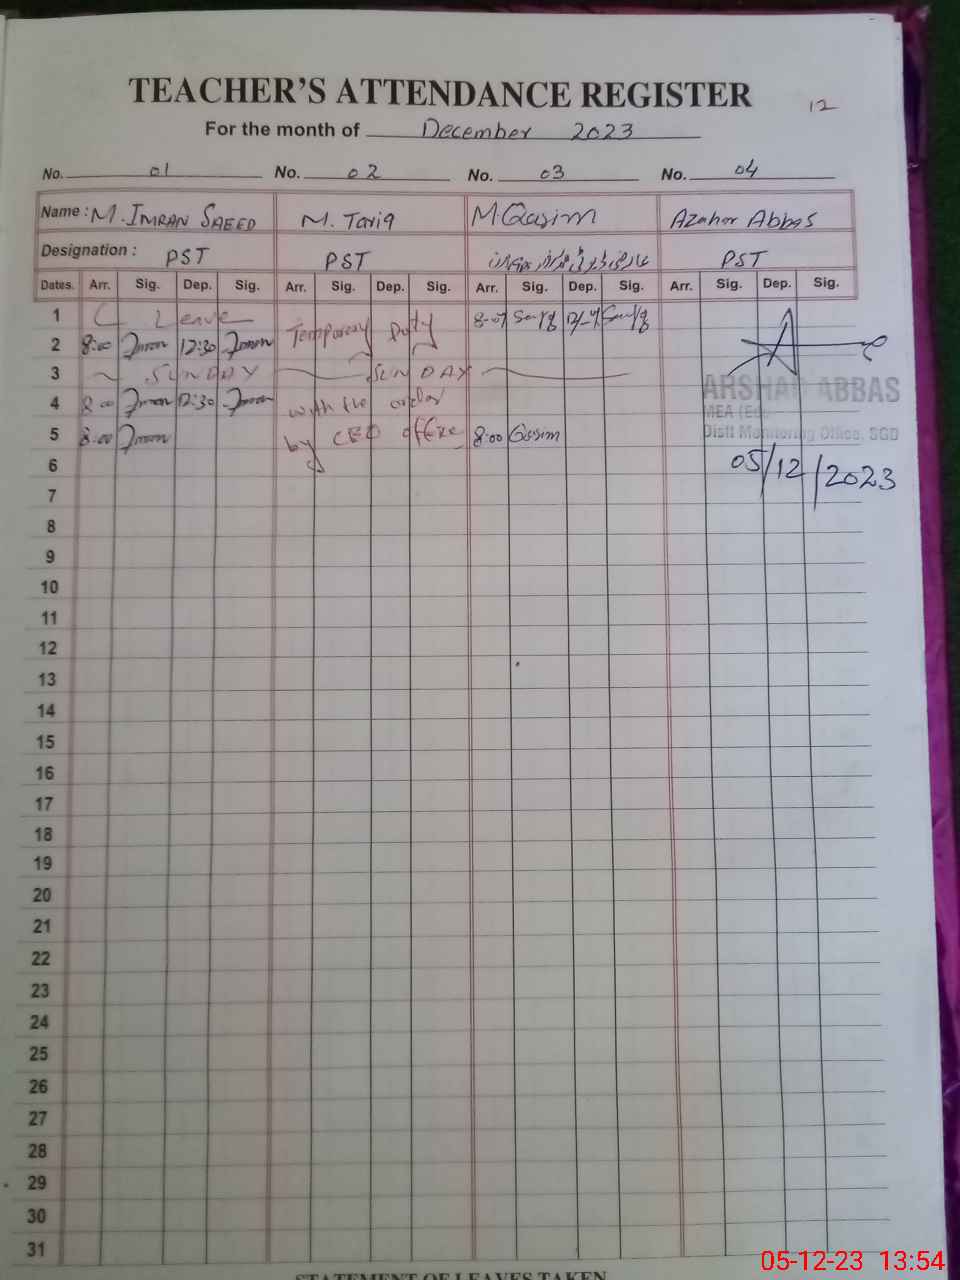 TEACHER'S ATTENDANCE REGISTER
12
For the month of December 2023
No. 01 No. 02 No. 03 No. 04
Name : M. IMRAN SAEED M. Tariq M. Qasim Azahar Abbas
Designation : PST PST PST
Dates. Arr. Sig. Dep. Sig. Arr. Sig. Dep. Sig. Arr. Sig. Dep. Sig. Arr. Sig. Dep. Sig.
1 C Leave Temporary Duty
2 8:00 Imran 12:30 Imran
3 SUNDAY SUNDAY
4 8:00 Imran 12:30 Imran with the order
5 8:00 Imran by CEO office 8:00 Qasim
ARSHAD ABBAS
MEA
Distt Monitoring Office, SGD
05/12/2023
6
7
8
9
10
11
12
13
14
15
16
17
18
19
20
21
22
23
24
25
26
27
28
29
30
31
STATEMENT OF LEAVES TAKEN
05-12-23 13:54